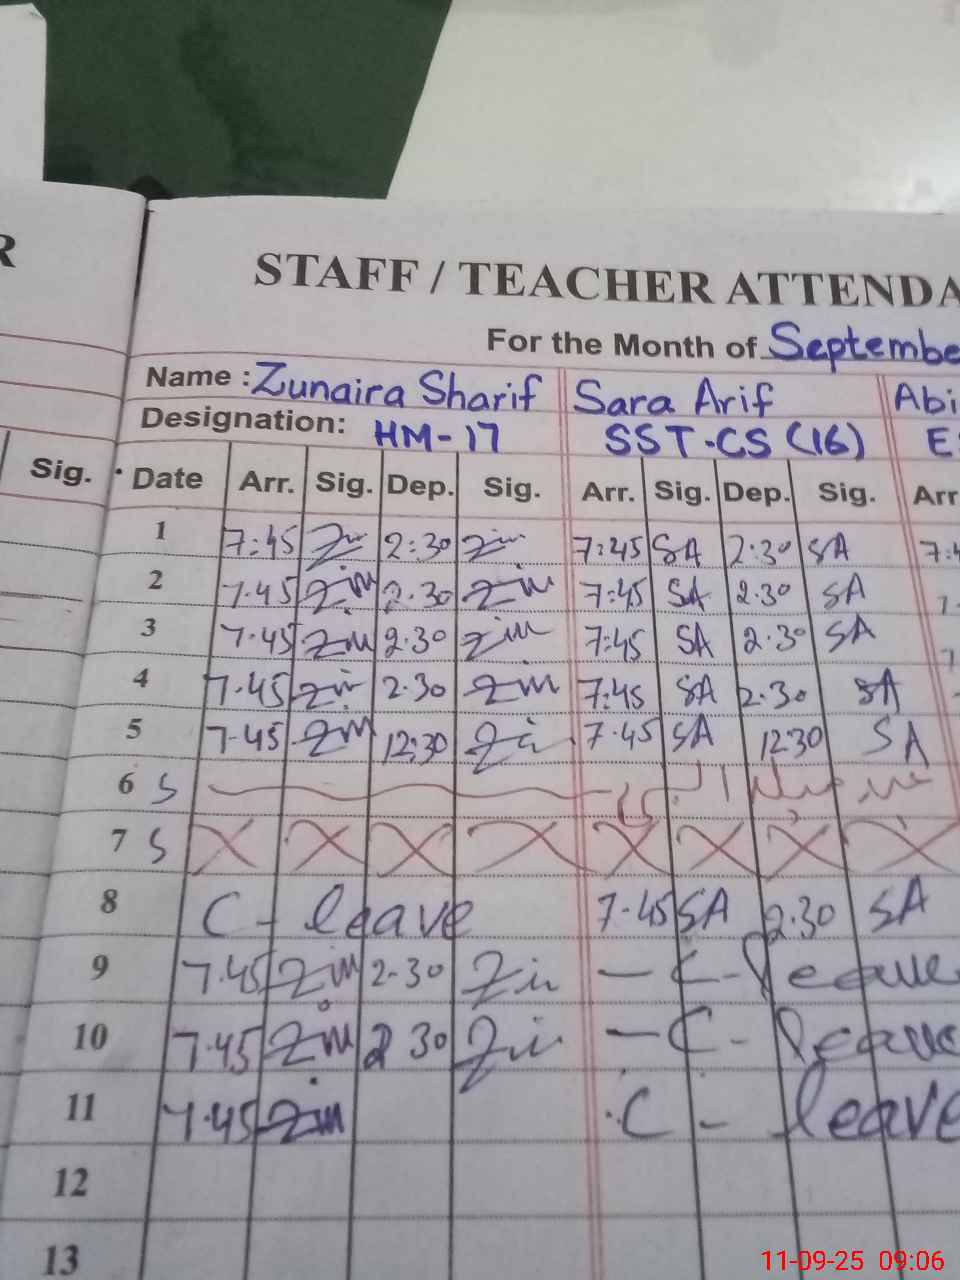 R
STAFF / TEACHER ATTENDA
For the Month of Septembe
Name : Zunaira Sharif Sara Arif Abi
Designation: HM-17 SST-CS (16) E
Sig. Date Arr. Sig. Dep. Sig. Arr. Sig. Dep. Sig. Arr
1 7:45 2:30 7:45 SA 2:30 SA 7:4
2 7.45 Zim 2.30 Zim 7:45 SA 2.30 SA 7.
3 7.45 Zim 2.30 Zim 7:45 SA 2.30 SA 7
4 7.45 Zim 2.30 Zim 7:45 SA 2.30 SA
5 7.45 Zim 12:30 7.45 SA 12:30 SA
6 S
7 S X X X X X X X X
8 C - leave 7.45 SA 2.30 SA
9 7.45 Zim 2.30 - C - leave
10 7.45 Zim 2 30 - C - leave
11 7.45 Zim C - leave
12
13
11-09-25 09:06